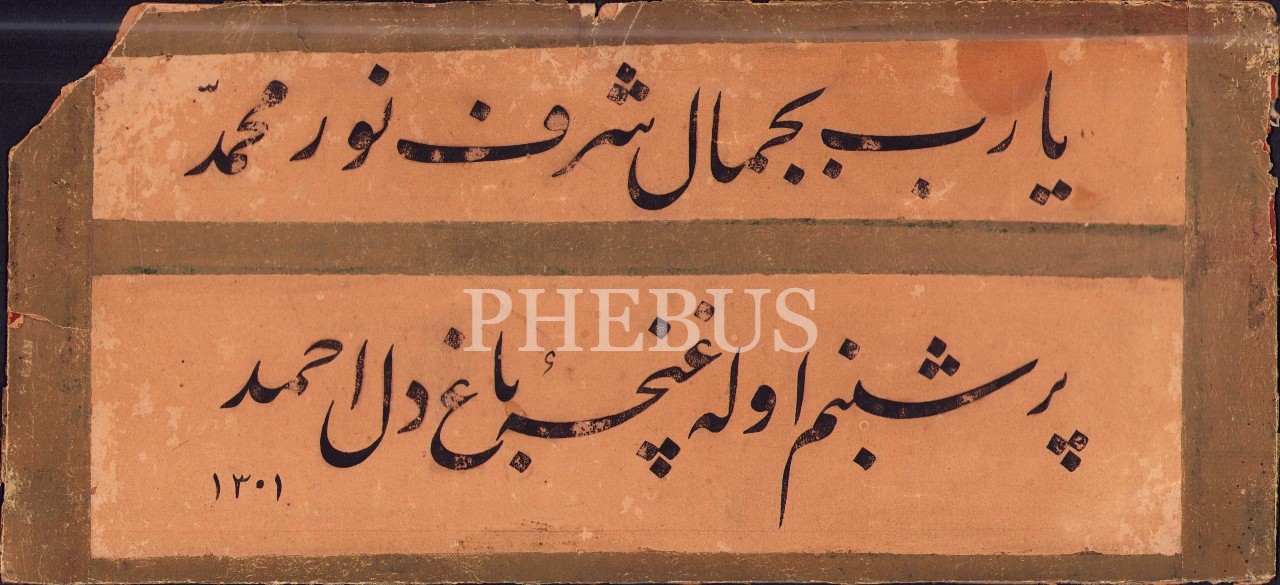 يا رب بجمال شرف نور محمّد
پر شبنم اوله غنچهٔ باغ دل احمد
١٣٠١
PHEBUS